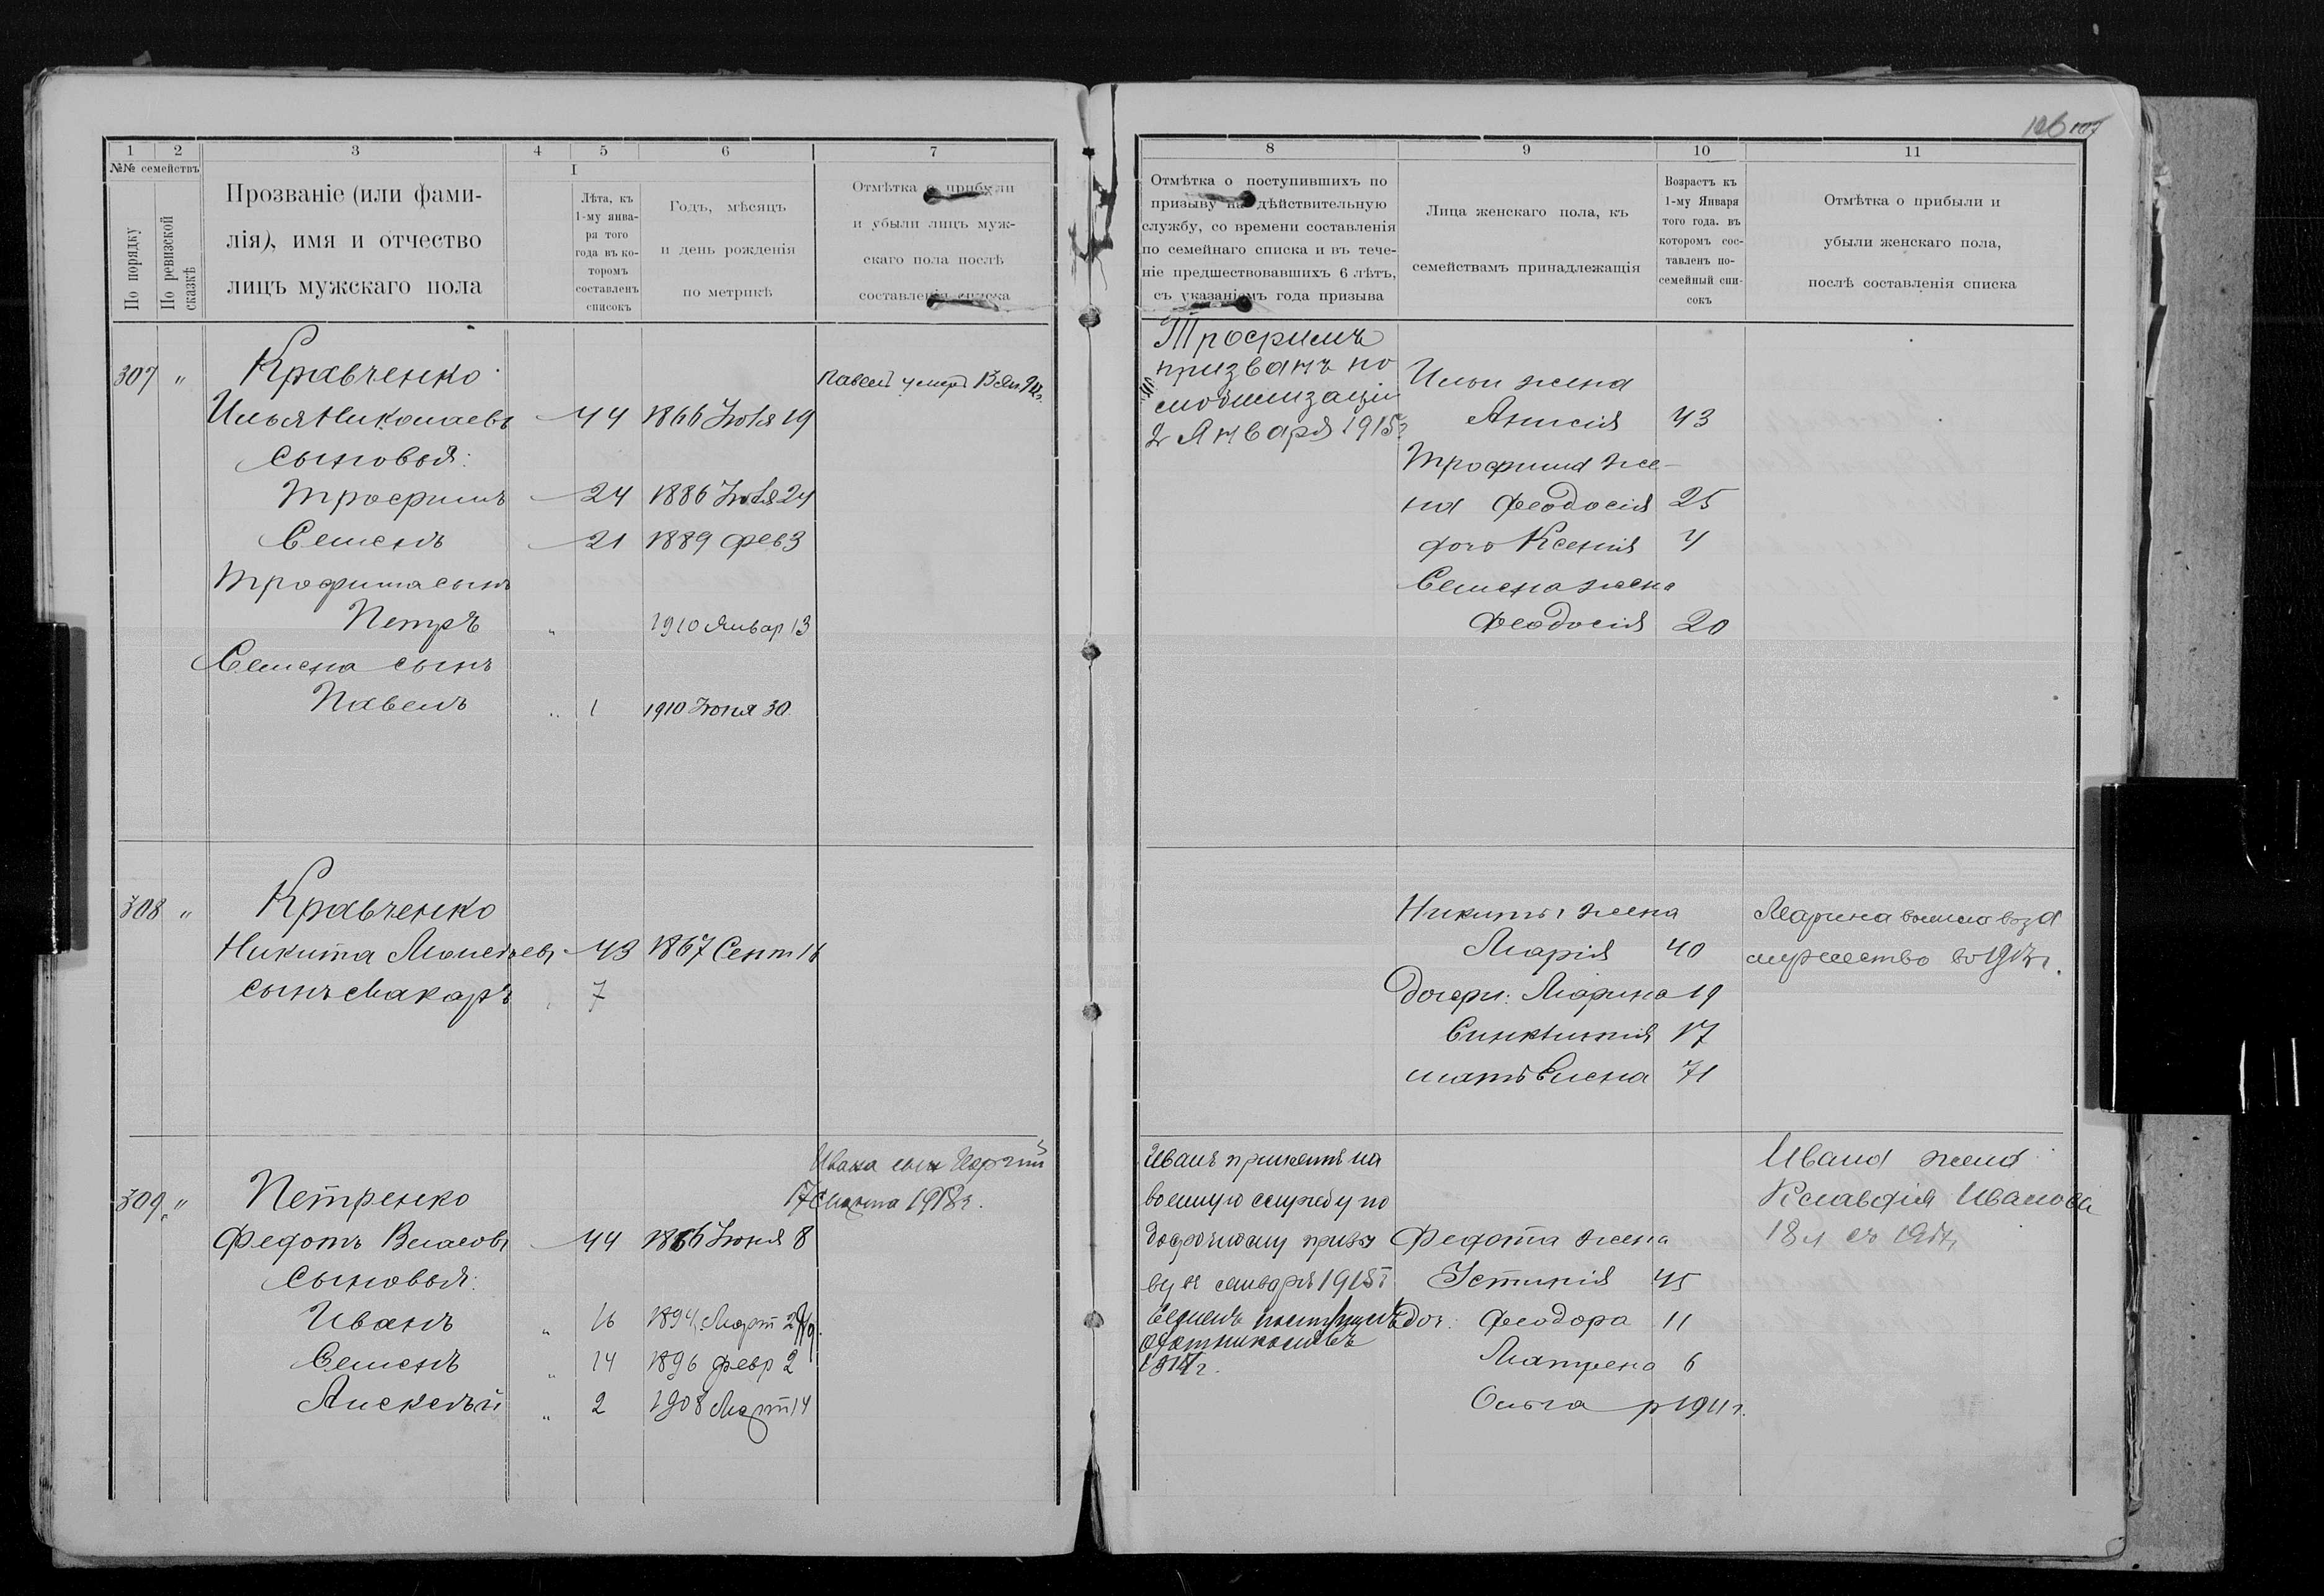 126 107
1 2 3 4 5 6 7
№№ семействъ
По порядку
По ревизской сказкѣ
Прозваніе (или фами-
лія), имя и отчество
лицъ мужскаго пола
I
Лѣта, къ
1-му янва-
ря того
года въ ко-
торомъ
составленъ
списокъ
Годъ, мѣсяцъ
и день рожденія
по метрикѣ
Отмѣтка о прибыли
и убыли лицъ муж-
скаго пола послѣ
составленія списка
307 „ Кравченко
Павелъ умеръ
Илья Николаевъ 44 1866 Іюля 19
Сыновья:
Трофимъ 24 1886 Іюля 24
Семенъ 21 1889 фев 3
Трофима сынъ
Петръ „ 1910 Январ 13
Семена сынъ
Павелъ „ 1 1910 Іюня 30.
308 „ Кравченко
Никита 43 1867 Сент 16
сынъ Макаръ 7
309 „ Петренко
Ивана сын
17 Марта 1918г.
Федотъ Власовъ 44 1866 Іюня 8
Сыновья:
Иванъ „ 16 1894 Март
Семенъ „ 14 1896 февр 2
Алексѣй „ 2 1908 Март 14
8 9 10 11
Отмѣтка о поступившихъ по
призыву на дѣйствительную
службу, со времени составленія
по семейнаго списка и въ тече-
ніе предшествовавшихъ 6 лѣтъ,
съ указаніемъ года призыва
Лица женскаго пола, къ
семействамъ принадлежащія
Возрастъ къ
1-му Января
того года. въ
которомъ сос-
тавленъ по-
семейный спи-
сокъ
Отмѣтка о прибыли и
убыли женскаго пола,
послѣ составленія списка
Трофимъ
призванъ по
мобилизаціи
Января 1915г
Ильи жена
Анисія 43
Трофима же-
на Феодосія 25
дочь Ксенія 4
Семена жена
Феодосія 20
Никиты жена
Марія 40
дочери: Марина 19
Синклитія 17
мать Елена 71
Марина вышла въ за
мужество въ
Иванъ принятъ на
военную службу по
досрочному призы
ву въ января 1915г
Семенъ поступилъ
охотникомъ въ
Федота жена
Устинія 45
доч: Феодора 11
Матрена 6
Ольга р 1911г.
Ивана жена
Клавдія Иванова
18 л съ